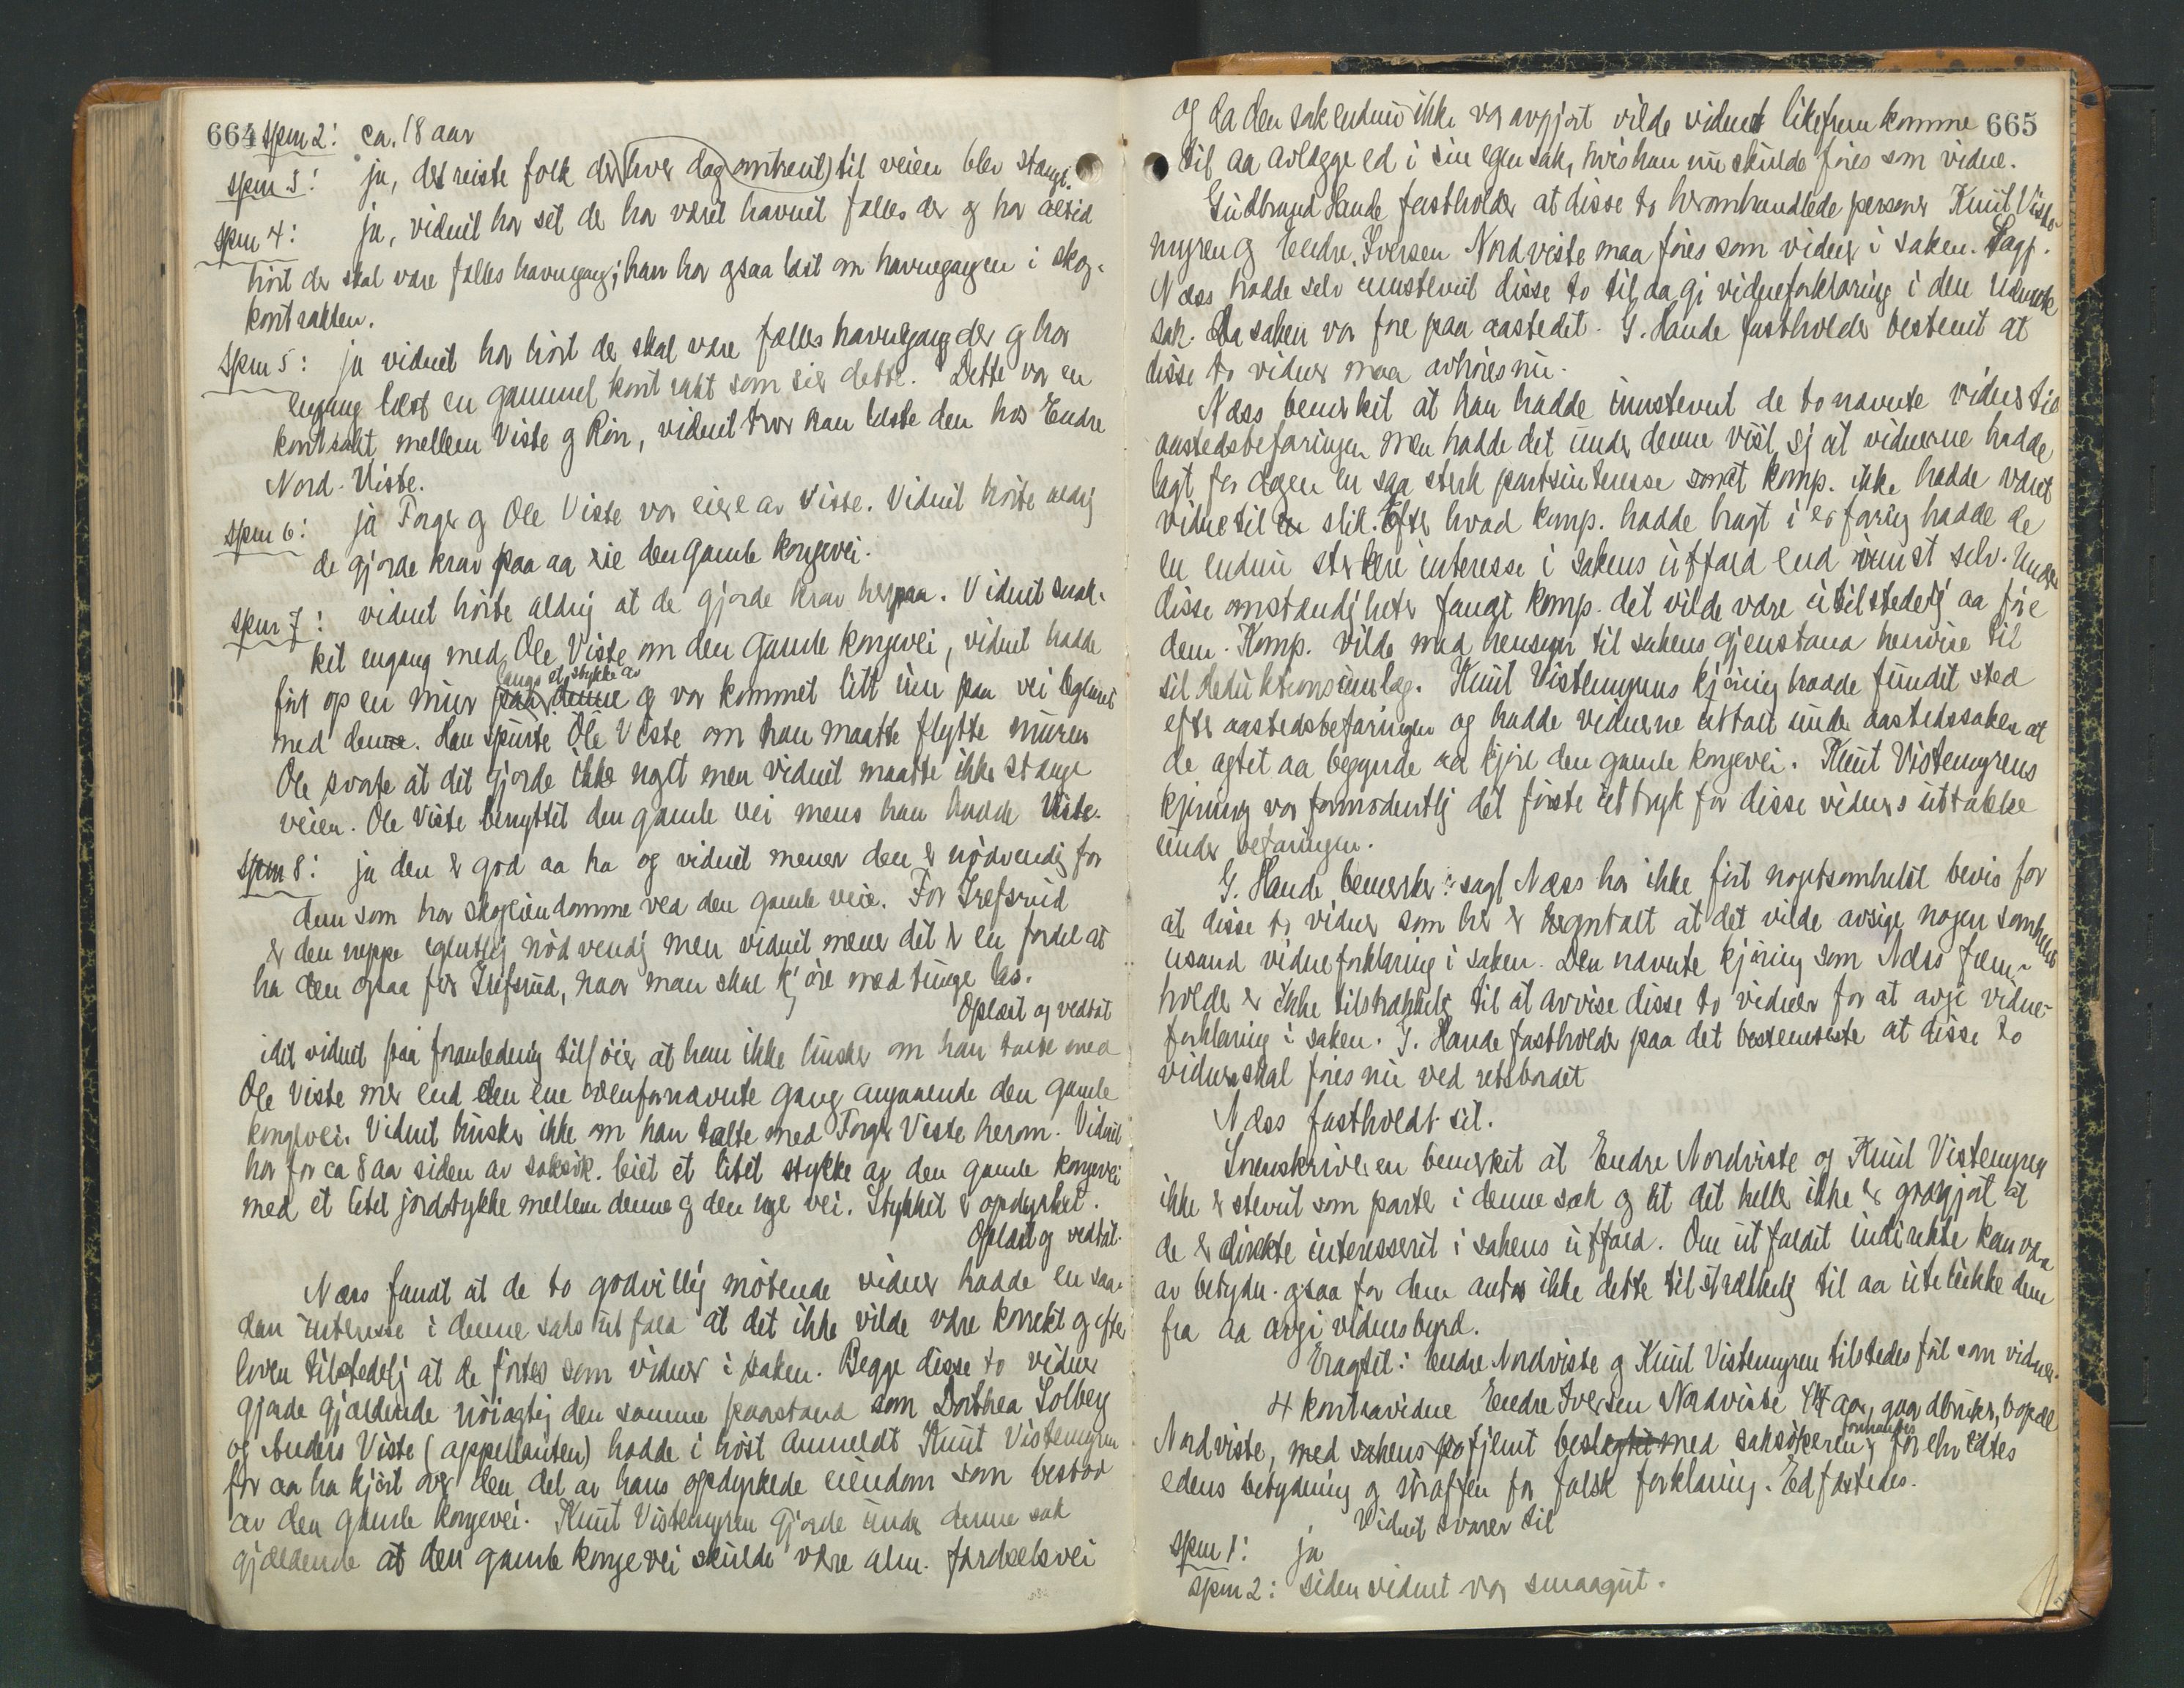 664 Spm 2: ca. 18 aar
Spm 3: ja, det reiste folk der (hver dag omtrent) til veien blev stængt.
Spm 4: ja, vidnet har set de har været havnet fælles der og har altid
hørt der skal være fælles havnegang; han har ogsaa læst om havnegangen i skog-
kontrakten.
Spm 5: ja vidnet har hørt der skal være fælles havnegang der og har
engang læst en gammel kontrakt som sier dette. Dette var en
kontrakt mellem Viste og Rön, vidnet tror han læste den hos Endre
Nord-Viste.
Spm 6: ja Torger og Ole Viste var eiere av Viste. Vidnet hørte aldrig
de gjorde krav paa aa eie den gamle kongevei.
Spm 7: vidnet hørte aldrig at de gjorde krav herpaa. Vidnet snak-
ket engang med Ole Viste om den gamle kongevei, vidnet hadde
langs et stykke av
ført op en mur paa denne og var kommet litt inn paa vei legemet
med denne. Han spurte Ole Viste om han maatte flytte muren
Ole svarte at det gjorde ikke noget men vidnet maatte ikke stænge
veien. Ole Viste benyttet den gamle vei mens han hadde Viste.
Spm 8: ja den er god aa ha og vidnet mener den er nødvendig for
dem som har skogeiendomme ved den gamle veie. For Trefsrud
er den neppe egentlig nødvendig men vidnet mener det er en fordel at
ha den ogsaa for Trefsrud, naar man skal kjøre med tunge læs.
Oplæst og vedtat
idet vidnet paa foranledning tilføier at han ikke husker om han talte med
Ole Viste mer end den ene ovenfornævnte gang angaaende den gamle
kongevei. Vidnet husker ikke om han talte med Torger Viste herom. Vidnet
har for ca 8 aar siden av saksøk. leiet et litet stykke av den gamle kongevei
med et litet jordstykke mellem denne og den nye vei. Stykket er opdyrket.
Oplæst og vedtat.
Næss fandt at de to godvillig møtende vidner hadde en saa-
dan interesse i denne saks utfald at det ikke vilde være korrekt og efter
loven tilstedelig at de førtes som vidner i saken. Begge disse to vidner
gjorde gjældende nøiagtig den samme paastand som Dorthea Solberg
og Anders Viste (appellanten) hadde i høst anmeldt Knut Vistemyren
for aa ha kjørt over den del av hans opdyrkede eiendom som bestod
av den gamle kongevei. Knut Vistemyren gjorde under denne sak
gjældende at den gamle kongevei skulde være alm. færdselsvei
og da den sak endnu ikke var avgjort vilde vidnet likefrem komme 665
til aa avlægge ed i sin egen sak, hvis han nu skulde føres som vidne.
Gudbrand Hande fastholder at disse to heromhandlede personer Knut Viste-
myren og Endre Iversen Nordviste maa føres som vidner i saken. Sagf.
Næss hadde selv innstevnt disse to til aa gi vidneforklaring i den
sak. Da saken var fore paa aastedet. G. Hande fastholder bestemt at
disse to vidner maa avhøres nu.
Næss bemerket at han hadde innstevnt de to navnte vidner til
aastedsbefaringen men hadde det under denne vist sig at vidnerne hadde
lagt for dagen en saa sterk partsinteresse som at komp. ikke hadde været
vidne til slik. Efter hvad komp. hadde bragt i erfaring hadde de
en endnu sterkere interesse i sakens utfald end selv. Under
disse omstændigheter fandt komp. det vilde være utilstedelig aa føre
dem. Komp. vilde med hensyn til sakens gjenstand henvise til
sit deduktionsinnlæg. Knut Vistemyrens kjøring hadde fundet sted
efter aastedsbefaringen og hadde vidnerne uttalt under aastedssaken at
de agtet aa begynde aa kjøre den gamle kongevei. Knut Vistemyrens
kjøring var formodentlig det første uttryk for disse vidners uttalelse
under befaringen.
G. Hande bemerker: sagf Næss har ikke ført nogetsomhelst bevis for
at disse to vidner som her er omtalt at det vilde avsige nogen somhelst
usand vidneforklaring i saken. Den navnte kjøring som Næss frem-
holder er ikke tilstrækkelig til at avvise disse to vidner for at avgi vidne-
forklaring i saken. G. Hande fastholder paa det bestemteste at disse to
vidner skal føres nu ved retsbordet
Næss fastholdt sit.
Sorenskriveren bemerket at Endre Nordviste og Knut Vistemyren
ikke er stevnt som parter i denne sak og at det heller ikke er godgjort at
de er direkte interesseret i sakens utfald. Om utfaldet indirekte kan være
av betydn. ogsaa for dem antas ikke dette tilstrækkelig til aa utelukke dem
fra aa avgi vidnesbyrd.
Eragtet: Endre Nordviste og Knut Vistemyren tilstedes ført som vidner.
4 kontravidne Endre Iversen Nordviste aar, gaardbruker, bopæl
Nordviste, med sakens fjernt beslegtet med saksøkeren, formanedes foreholdtes
edens betydning og straffen for falsk forklaring. Ed fæstedes.
Vidnet svarer til
Spm 1: ja
Spm 2: siden vidnet var smaagut.